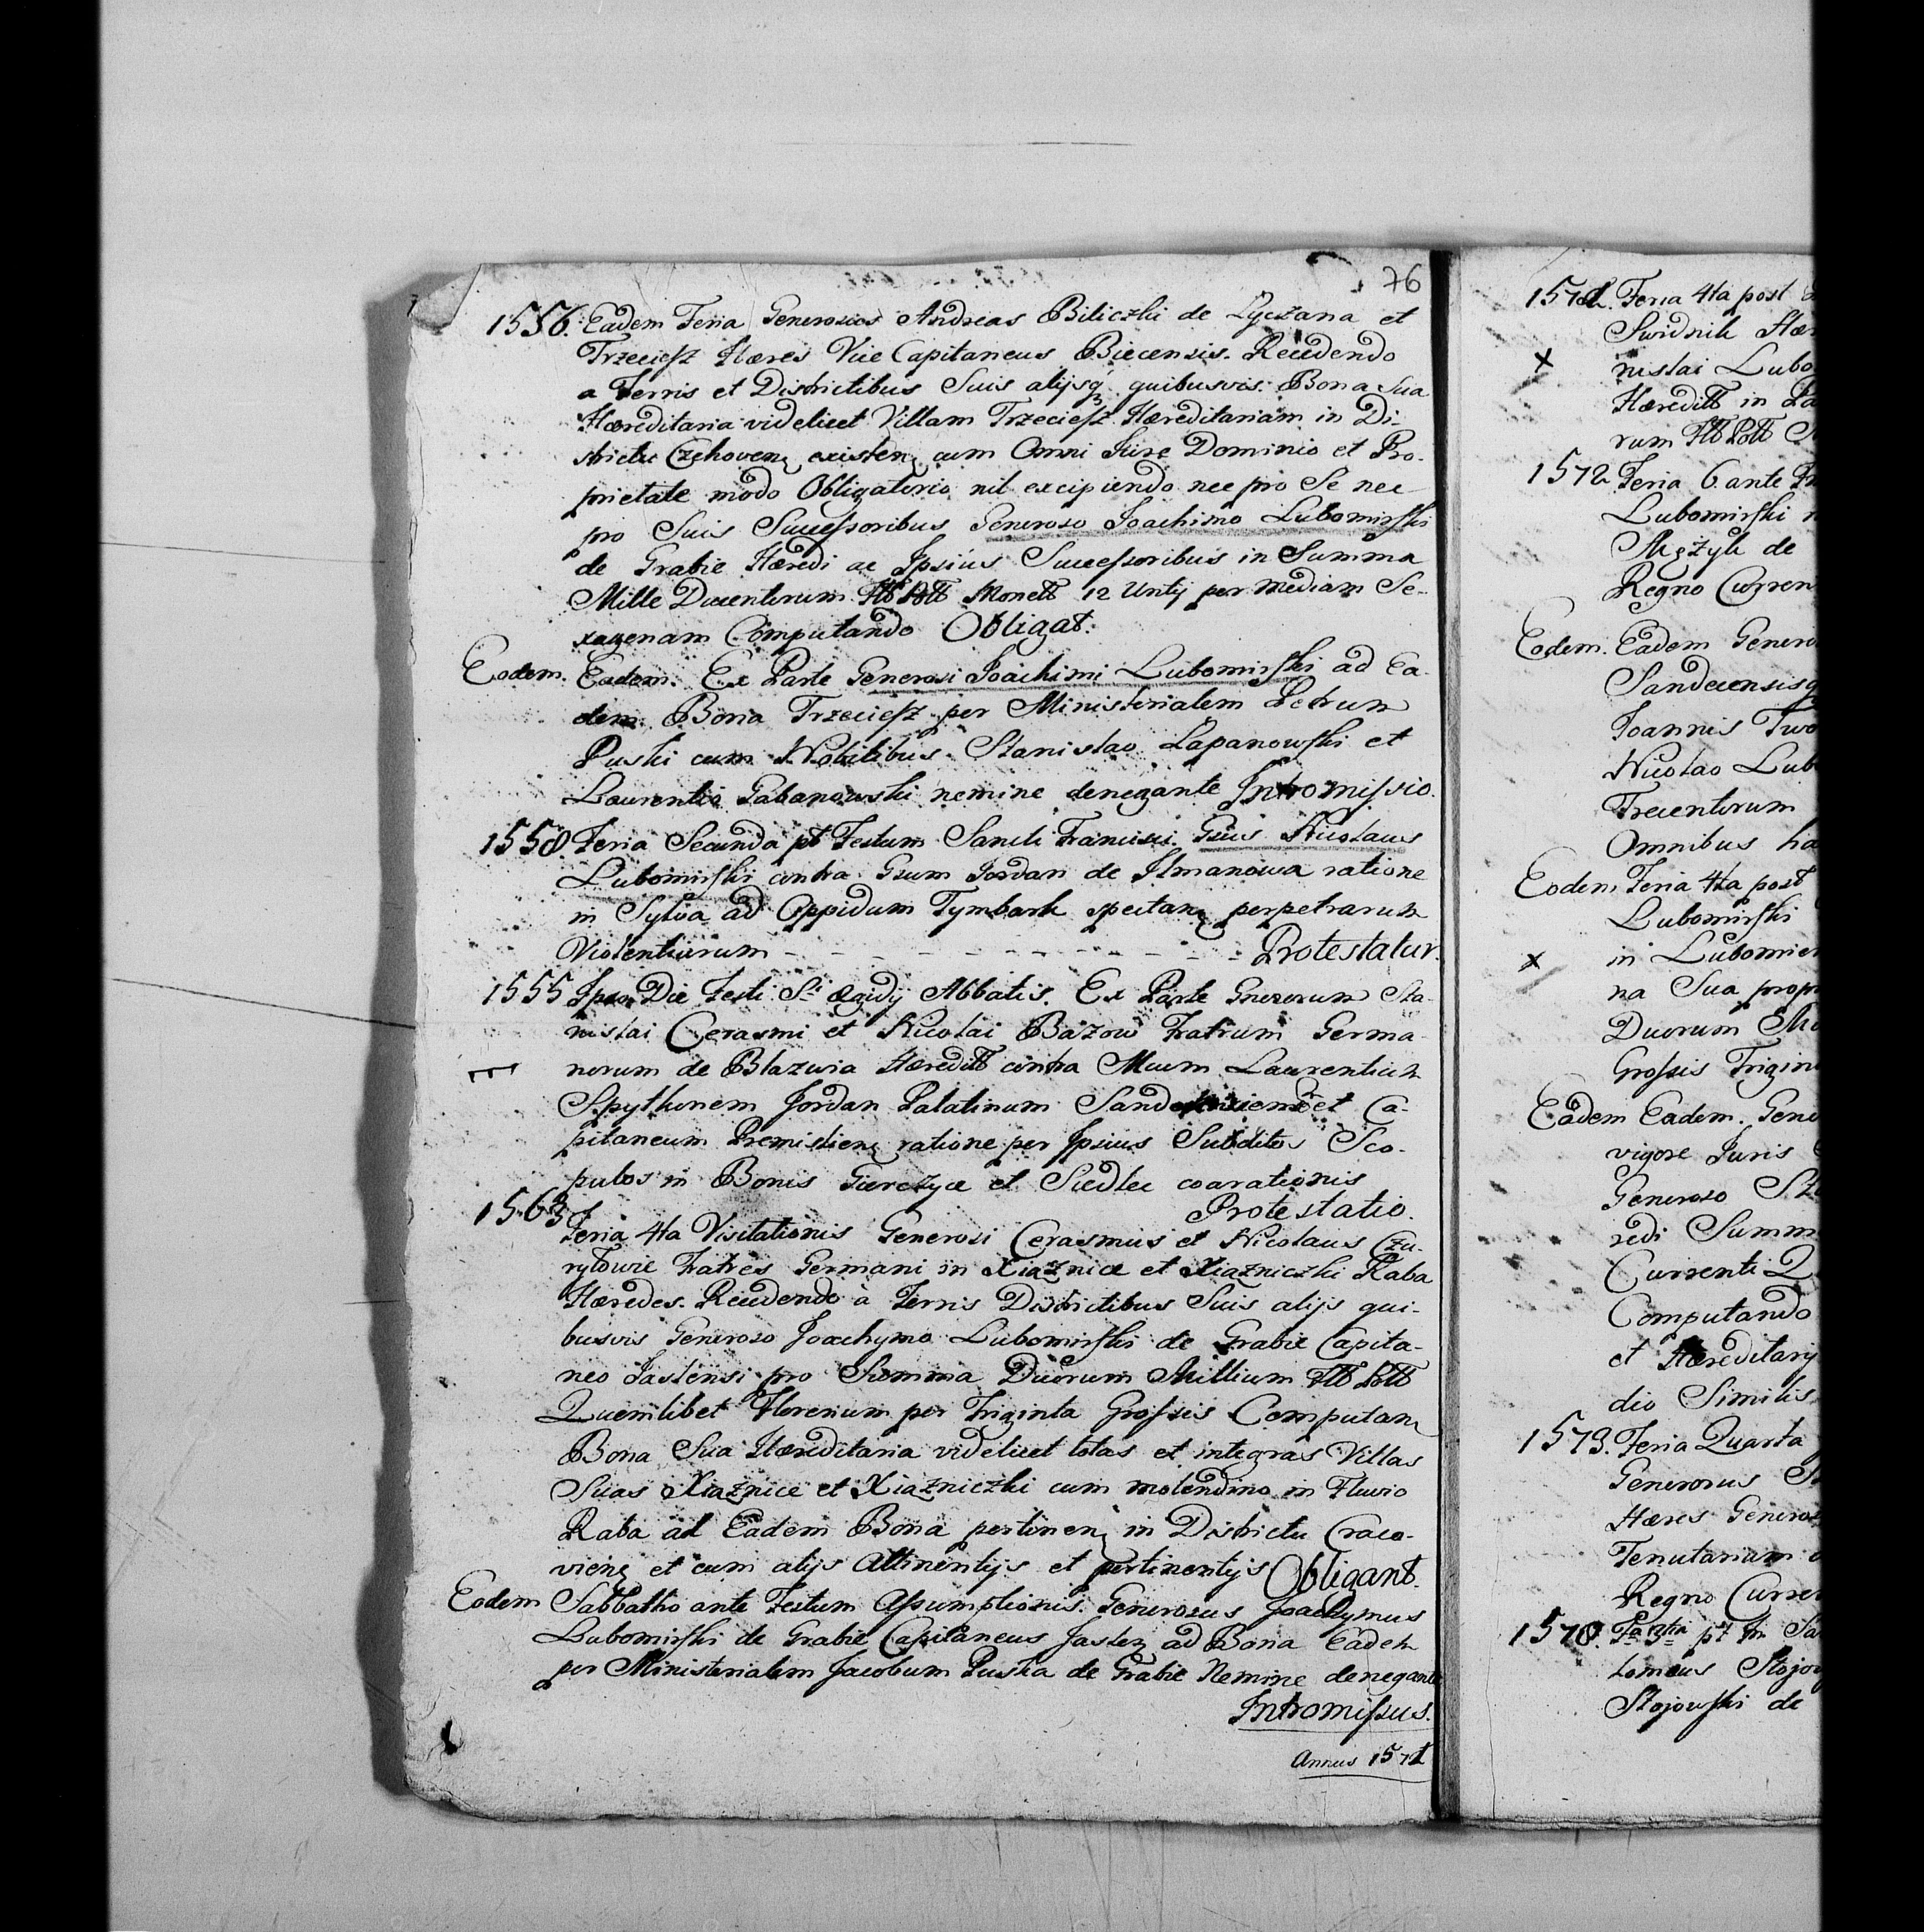 76
1556. Eadem Feria Generosus Andreas Biliczki de Lyczana et
Trzeciesz Hæres Vice Capitaneus Biecensis. Recedendo
a Terris et Districtibus Suis alijsq quibusvis. Bona Sua
Hæreditaria videlicet Villam Trzeciesz Hæreditariam in Di-
strictu Czchoven existen cum Omni Jure Dominio et Pro-
prietate modo Obligatorio nil excipiendo nec pro Se nec
pro Suis Successoribus Generoso Joachimo Lubomirski
de Grabie Hæredi ac Ipsius Successoribus in Summa
Mille Ducentorum Flb Pollb Monetb 12 Untj per mediam Se-
xagenam Computando Obligat.
Eodem. Eadem. Ex Parte Generosi Joachimi Lubomirski ad Ea-
dem Bona Trzeciesz per Ministerialem Petrum
Puski cum Nobilibus Stanislao Lapanowski et
Laurentio Gabanowski nemine denegante Intromissio.
1558. Feria Secunda pt Festum Sancti Francisci. Gsus Nicolaus
Lubomirski contra Gsum Jordan de Ilmanowa ratione
in Sylva ad Oppidum Tymbark spectan perpetrarum
Violentiarum - - - - - - - - - - Protestatur.
1555 Ipso Die Festi Sti Ægidij Abbatis. Ex Parte Gnererum Sta-
nislai Cerasmi et Nicolai Bazow Fratrum Germa-
norum de Blazwia Hæreditb contra Mcum Laurentium
Spythonem Jordan Palatinum et Ca-
pitaneum Premislien ratione per Ipsius Subditos Sco-
pulos in Bonis Gierczyce et Siedlec coarationis
Protestatio.
1563 Feria 4ta Visitationis Generosi Cerasmus et Nicolaus Czu-
rylowie Fratres Germani in Xiaznice et Xiazniczki Raba
Hæredes. Recedendo à Terris Districtibus Suis alijs qui-
busvis Generoso Joachymo Lubomirski de Grabie Capita-
neo Jaslensi pro Summa Duorum Millium Flb Pollb
Quemlibet Florenum per Triginta Grossis Computan
Bona Sua Hæreditaria videlicet totas et integras Villas
Suas Xiaznice et Xiazniczki cum molendino in Fluvio
Raba ad Eadem Bona pertinen in Districtu Craco-
vien et cum alijs Attinentijs et pertinentijs Obligant.
Eodem Sabbatho ante Festum Assumptionis. Generosus Joachymus
Lubomirski de Grabie Capitaneus Jaslen ad Bona Eadem
per Ministerialem Jacobum Puska de Grabie Nemine denegante
Intromissus.
Annus 1571
1571. Feria 4ta post
Swidnik Hær
x nislai Lubo
Hæreditb in
rum Flb Pollb
1572 Feria 6. ante
Lubomirski
Mężyk de
Regno Curren
Eodem. Eadem Genero
Sandecensisq
Joannis Two
Nicolao Lub
Trecentorum
Omnibus ha
Eodem Feria 4ta post
Lubomirski
x in Lubomier
na Sua propr
Duorum
Grossis Trigin
Eadem Eadem. Gene
vigore Juris
Generoso
redi Summ
Currenti Q
Computando
et Hæreditarij
dio Similis
1573. Feria Quarta
Generosus
Hæres Generos
Tenutarium
Regno Curren
1570. pt
lomeus Stojow
Stojowski de